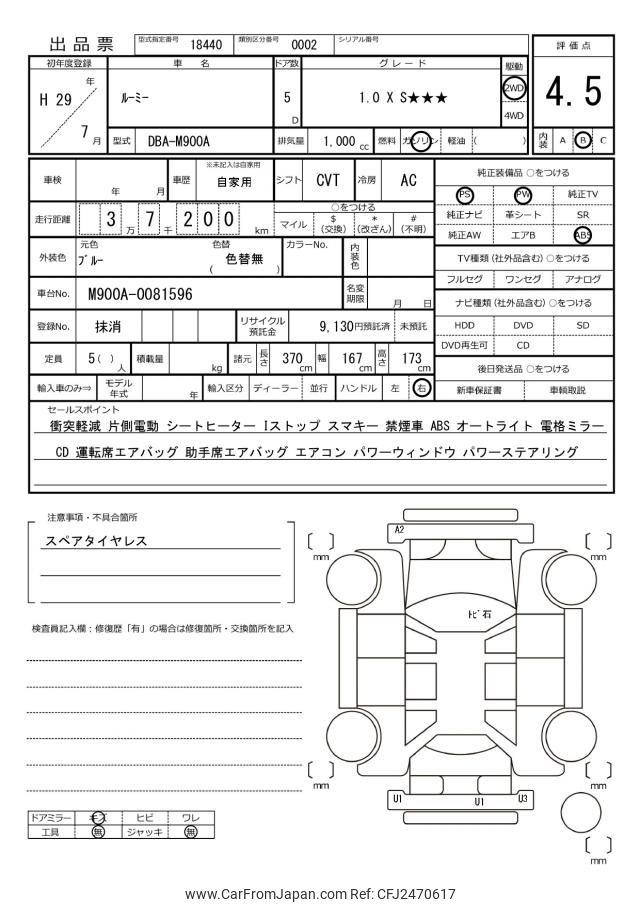 出品票 型式指定番号 18440 類別区分番号 0002 シリアル番号
評価点
4.5
内装 A B C
初年度登録 車名 ドア数 グレード 駆動
H 29 年 7 月 ルーミー 5 D 1.0 X S★★★ 2WD 4WD
型式 DBA-M900A 排気量 1,000 cc 燃料 ガソリン 軽油 ( )
車検 年 月 車歴 ※未記入は自家用 自家用 シフト CVT 冷房 AC
走行距離 3 7 万 千 2 0 0 km ○をつける
マイル $ (交換) * (改ざん) # (不明)
外装色 元色 ブルー 色替 ( 色替無 ) カラーNo. 内装色
車台No. M900A-0081596 名変期限 月 日
登録No. 抹消 リサイクル預託金 9,130円預託済 未預託
定員 5( ) 人 積載量 kg 諸元 長さ 370 cm 幅 167 cm 高さ 173 cm
輸入車のみ⇒ モデル年式 年 輸入区分 ディーラー 並行 ハンドル 左 右
純正装備品 ○をつける
PS PW 純正TV
純正ナビ 革シート SR
純正AW エアB ABS
TV種類 (社外品含む) ○をつける
フルセグ ワンセグ アナログ
ナビ種類 (社外品含む) ○をつける
HDD DVD SD
DVD再生可 CD
後日発送品 ○をつける
新車保証書 車輌取説
セールスポイント
衝突軽減 片側電動 シートヒーター Iストップ スマキー 禁煙車 ABS オートライト 電格ミラー
CD 運転席エアバッグ 助手席エアバッグ エアコン パワーウィンドウ パワーステアリング
注意事項・不具合箇所
スペアタイヤレス
検査員記入欄：修復歴「有」の場合は修復箇所・交換箇所を記入
A2
mm
mm
トビ石
mm
mm
U1 U1 U3
mm
ドアミラー キズ ヒビ ワレ
工具 無 ジャッキ 無
www.CarFromJapan.com Ref: CFJ2470617